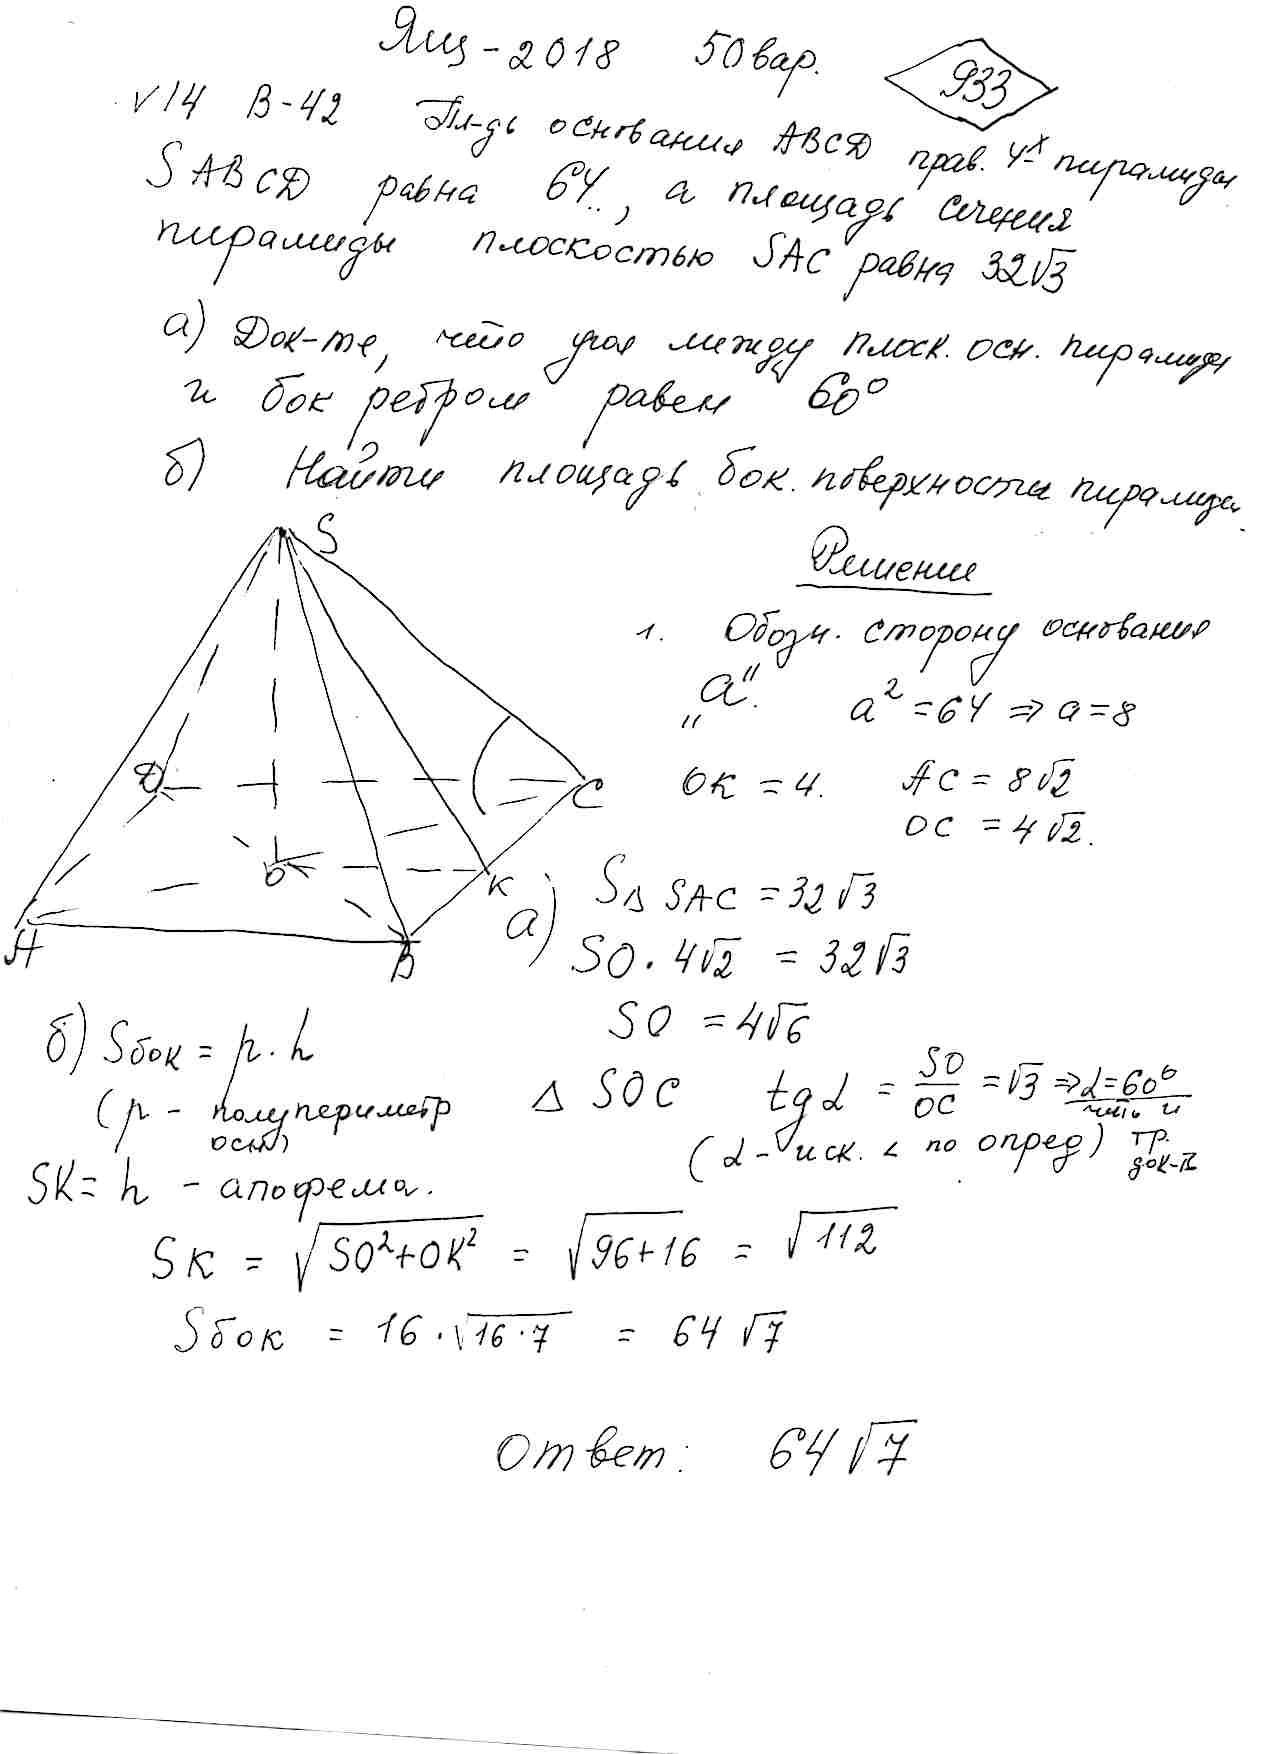 Ящ-2018 50 вар.
933
√14 В-42 Пл-дь основания ABCD прав. 4-х пирамиды
SABCD равна 64, а площадь сечения
пирамиды плоскостью SAC равна 32√3
а) Док-те, что угол между плоск. осн. пирамиды
и бок ребром равен 60°
б) Найти площадь бок. поверхности пирамиды.
S
D
C
O
K
A
B
Решение
1. Обозн. сторону основания
„a". a² = 64 ⇒ a = 8
OK = 4. AC = 8√2
OC = 4√2.
а) S△SAC = 32√3
SO · 4√2 = 32√3
SO = 4√6
△ SOC tg α = SO/OC = √3 ⇒ α = 60°
что и
тр.
док-ть
(α - иск. ∠ по опред)
б) Sбок = p · h
(p - полупериметр
осн)
SK = h - апофема.
SK = √(SO² + OK²) = √(96+16) = √112
Sбок = 16 · √(16·7) = 64√7
Ответ: 64√7